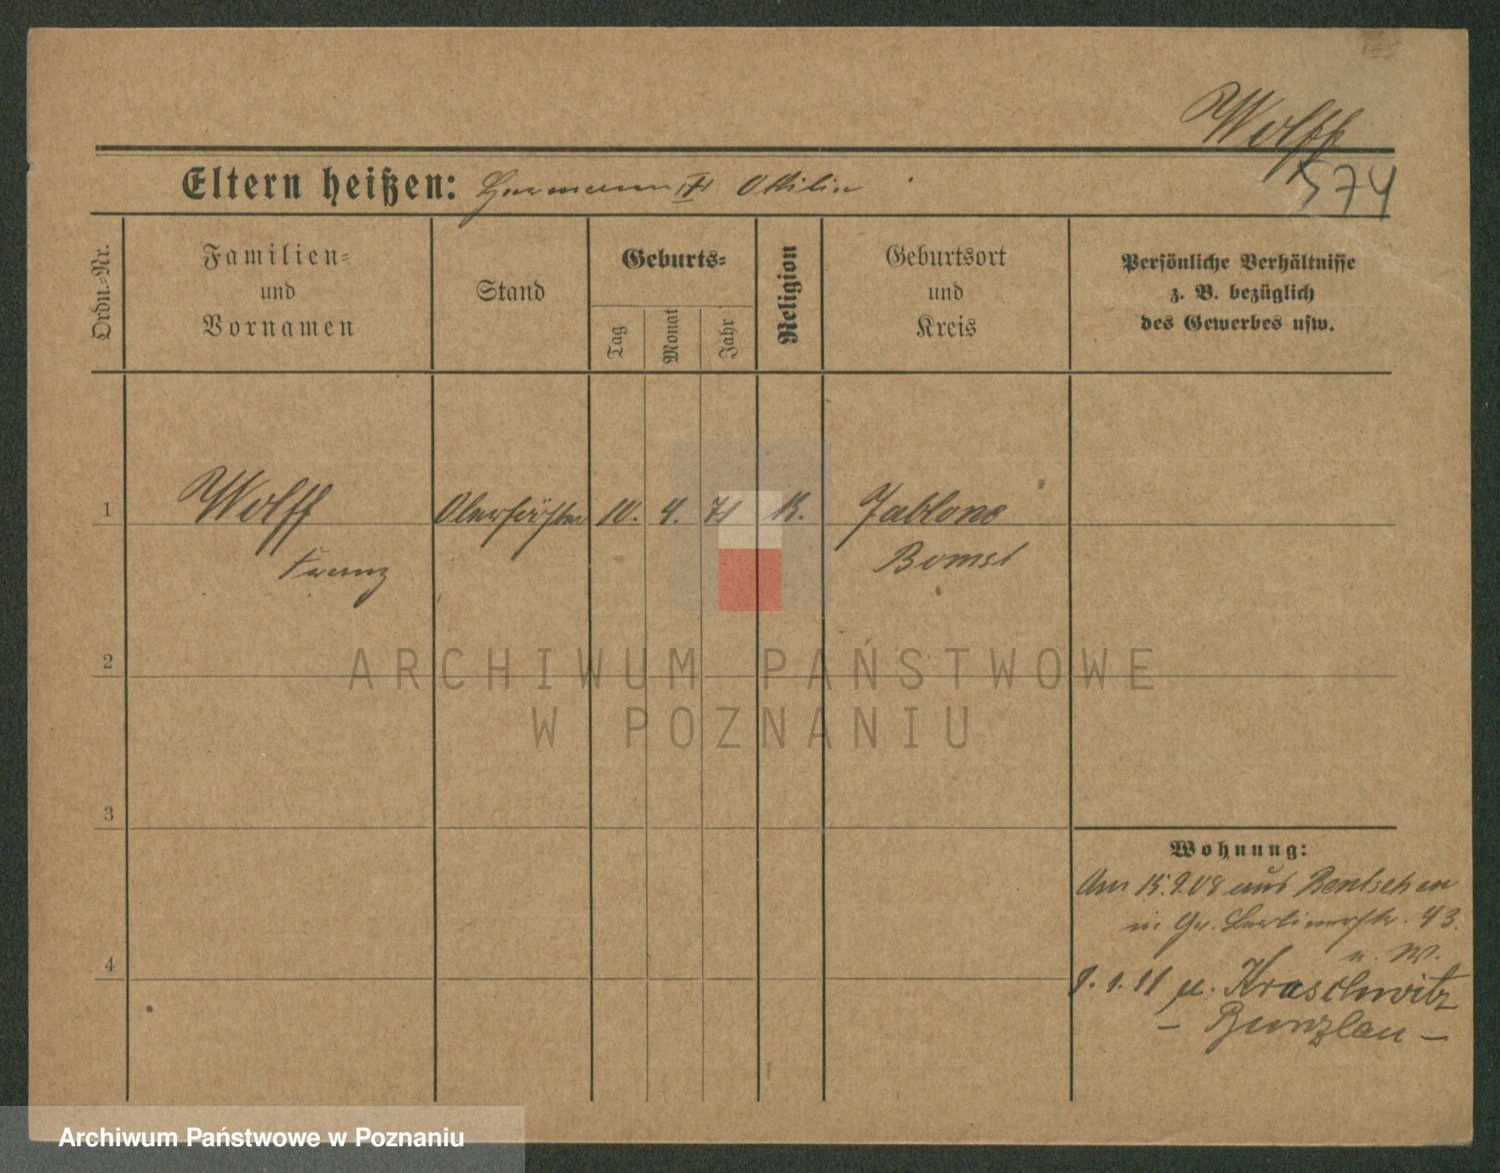 Wolff
574
Eltern heißen: Hermann Ottilie
Ordn.-Nr.
Familien-
und
Vornamen
Stand
Geburts-
Tag
Monat
Jahr
Religion
Geburtsort
und
Kreis
Persönliche Verhältnisse
z. B. bezüglich
des Gewerbes usw.
1 Wolff Oberförster 10. 4. 71 K. Jablone
Franz Bomst
2
3
4
Wohnung:
Am 15.9.08 aus Bentschen
in Gr. Berlinerstr. 43.
u. W.
9.1.11 n. Kraschwitz
- Bunzlau -
ARCHIWUM PAŃSTWOWE
W POZNANIU
Archiwum Państwowe w Poznaniu